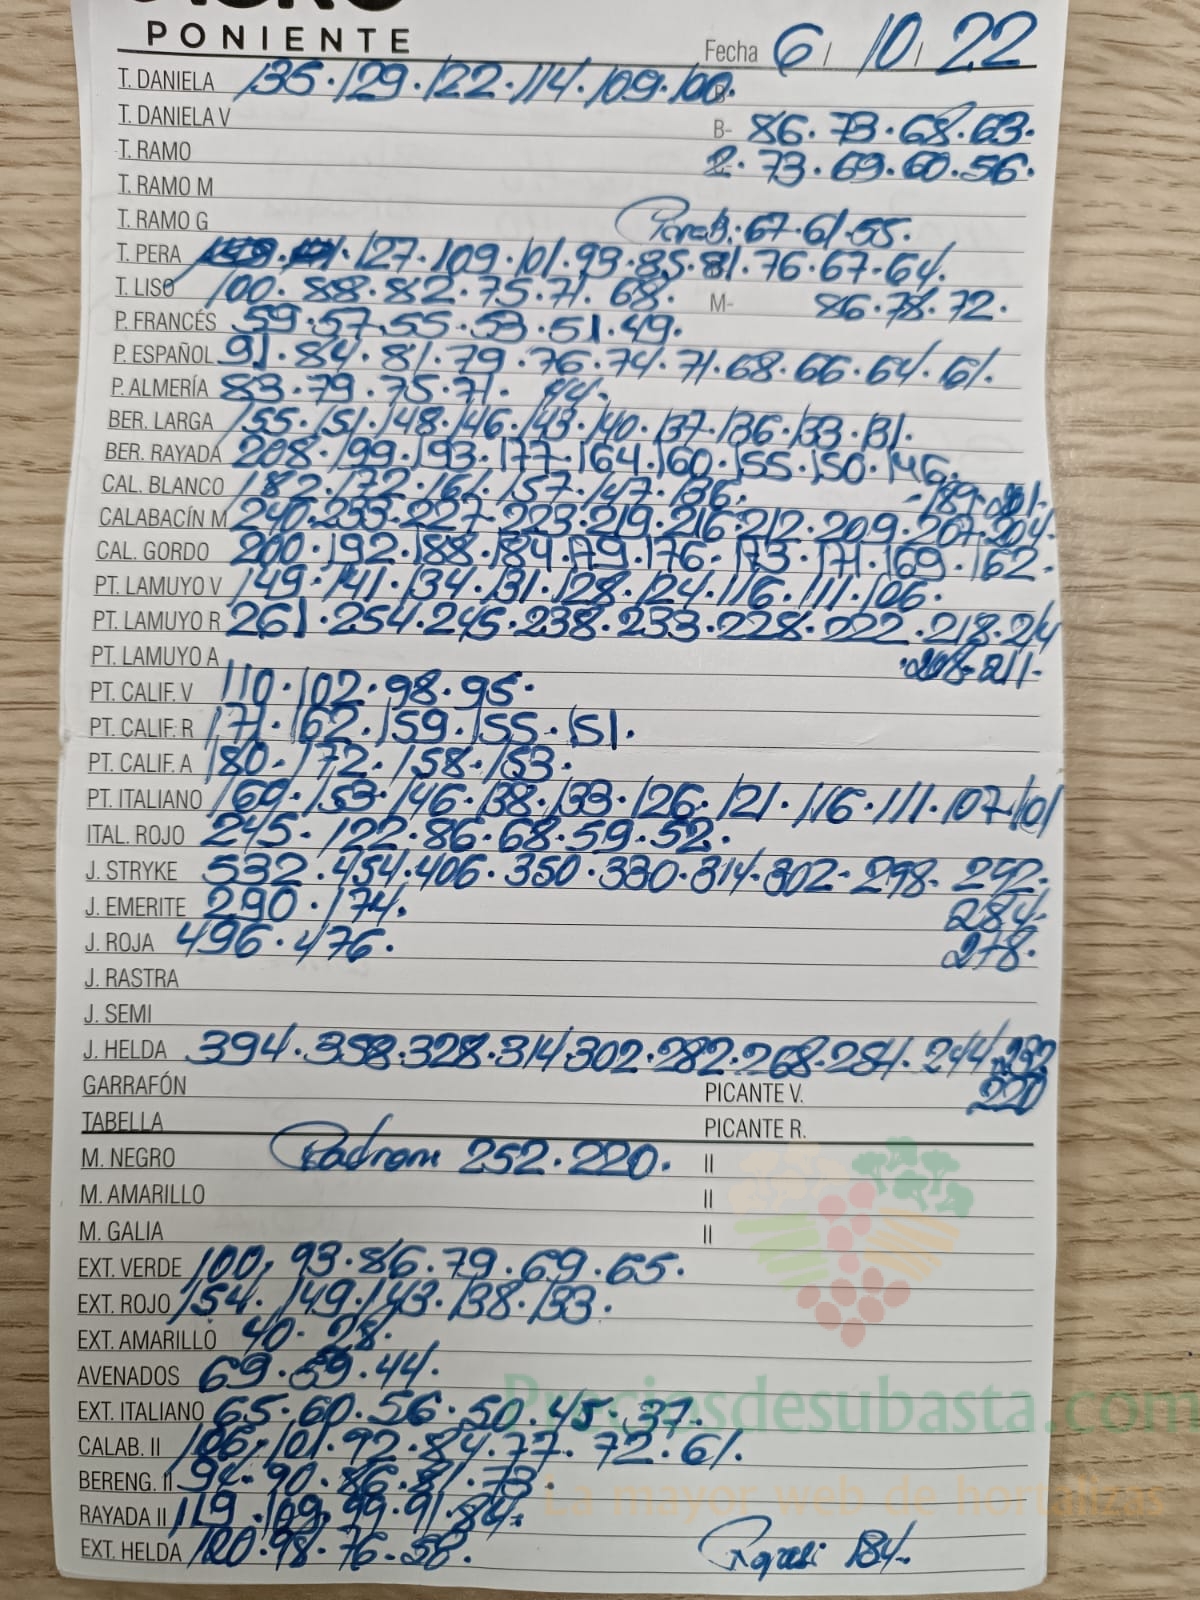 PONIENTE
Fecha 6/ 10/ 22
T. DANIELA 135. 129. 122. 114. 109. 100.
T. DANIELA V B- 86. 73. 68. 63.
T. RAMO 2. 73. 69. 60. 56.
T. RAMO M
T. RAMO G 67. 61. 55.
T. PERA 127. 109. 101. 93. 85. 81. 76. 67. 64.
T. LISO 100. 88. 82. 75. 71. 68. M- 86. 78. 72.
P. FRANCÉS 59. 57. 55. 53. 51. 49.
P. ESPAÑOL 91. 84. 81. 79. 76. 74. 71. 68. 66. 64. 61.
P. ALMERÍA 83. 79. 75. 71. 44.
BER. LARGA 155. 151. 148. 146. 143. 140. 137. 136. 133. 131.
BER. RAYADA 208. 199. 193. 177. 164. 160. 155. 150. 146.
CAL. BLANCO 182. 172. 161. 157. 147. 136. - 189.
CALABACÍN M 240. 233. 227. 223. 219. 216. 212. 209. 207. 204.
CAL. GORDO 200. 192. 188. 184. 179. 176. 173. 171. 169. 162.
PT. LAMUYO V 149. 141. 134. 131. 128. 124. 116. 111. 106.
PT. LAMUYO R 261. 254. 245. 238. 233. 228. 222. 218. 214
PT. LAMUYO A 208. 211.
PT. CALIF. V 110. 102. 98. 95.
PT. CALIF. R 171. 162. 159. 155. 151.
PT. CALIF. A 180. 172. 158. 153.
PT. ITALIANO 160. 153. 146. 138. 133. 126. 121. 116. 111. 107. 101
ITAL. ROJO 245. 122. 86. 68. 59. 52.
J. STRYKE 532. 454. 406. 350. 330. 314. 302. 298. 292.
J. EMERITE 290. 174. 284.
J. ROJA 496. 476. 278.
J. RASTRA
J. SEMI
J. HELDA 394. 358. 328. 314. 302. 282. 268. 254. 244. 232
GARRAFÓN PICANTE V. 220
TABELLA PICANTE R.
M. NEGRO Padron 252. 220. II
M. AMARILLO II
M. GALIA II
EXT. VERDE 100. 93. 86. 79. 69. 65.
EXT. ROJO 154. 149. 143. 138. 133.
EXT. AMARILLO 40. 28.
AVENADOS 69. 59. 44.
Preciosdesubasta.com
EXT. ITALIANO 65. 60. 56. 50. 45. 37.
CALAB. II 106. 101. 92. 84. 77. 72. 61.
BERENG. II 94. 90. 86. 81. 73.
La mayor web de hortalizas
RAYADA II 119. 109. 99. 91. 84.
EXT. HELDA 120. 98. 76. 58. 184.